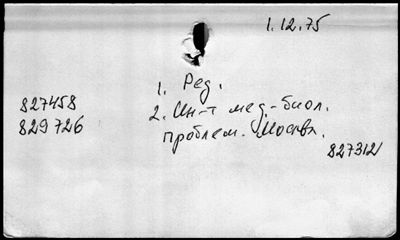 1.12.75
1. Ред.
827458
2. Ин-т мед-биол.
829726
проблем. Москва.
827312